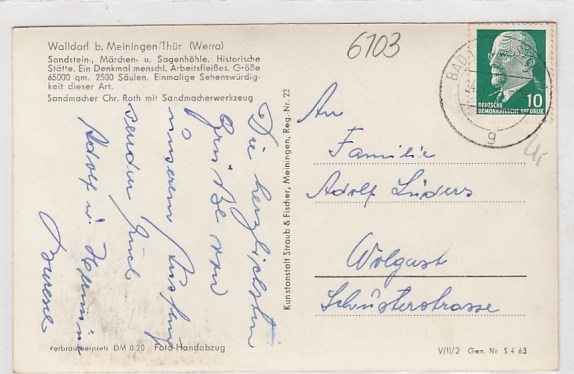 Walldorf b. Meiningen/Thür. (Werra)
Sandstein-, Märchen- u. Sagenhöhle. Historische
Stätte. Ein Denkmal menschl. Arbeitsfleißes. Größe
65000 qm. 2500 Säulen. Einmalige Sehenswürdig-
keit dieser Art.
Sandmacher Chr. Roth mit Sandmacherwerkzeug
6103
BAD
g
DEUTSCHE
DEMOKRATISCHE REPUBLIK
10
Die herzlichsten
Grüße von
unserem Ausflug
senden Euch
Adolf u.
Kunstanstalt Straub & Fischer, Meiningen, Reg. Nr. 23
An
Familie
Adolf Lüders
Wolgast
Schusterstrasse
Verbraucherpreis DM 0.20 Foto-Handabzug
V/11/2 Gen. Nr. S 4 63